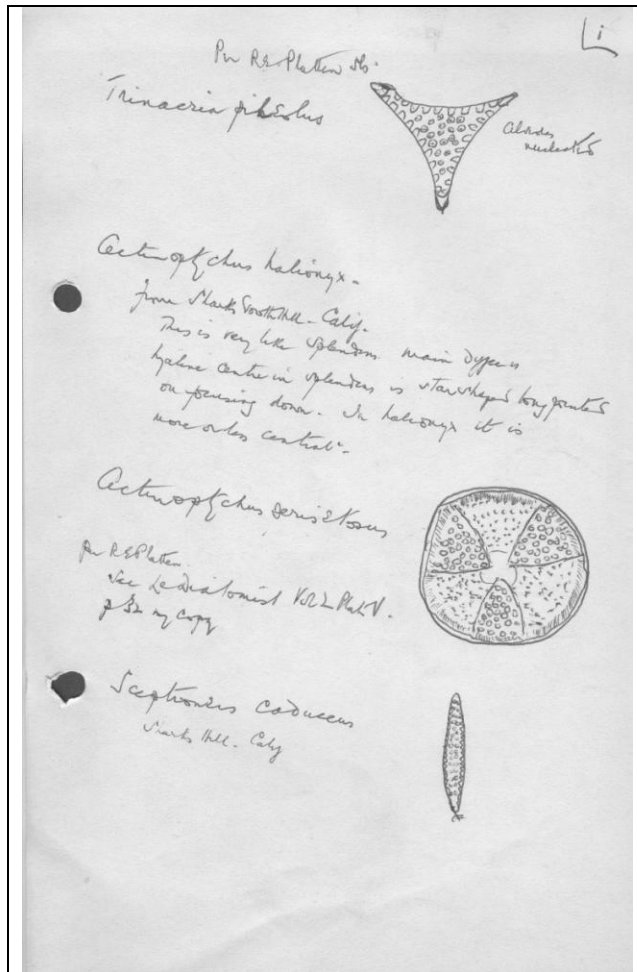 i
Per R E Platten
Trinacria pileolus
nucleated
Actinoptychus halionyx -
from Sharks Tooth Hill - Calif.
This is very like splendens main is
hyaline centre in splendens is star shaped long pointed
on focusing down. In halionyx it is
more or less central.
Actinoptychus
per R E Platten
see Le Diatomiste Vol 2 Plate V.
p 32 my copy
Sceptroneis caduceus
Sharks Hill - Calif